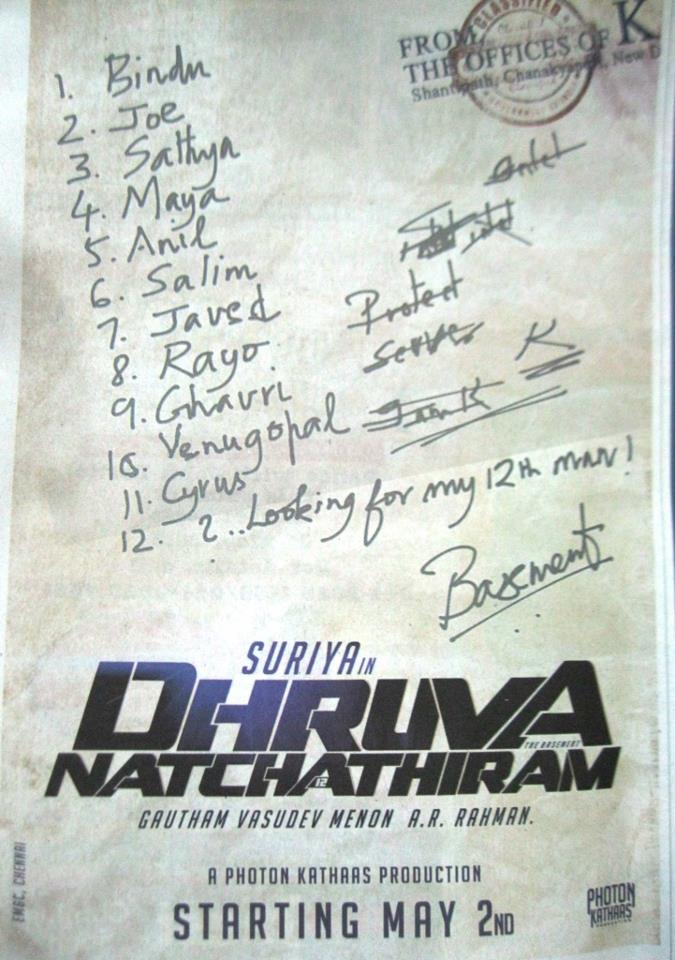 CLASSIFIED
FROM
THE OFFICES OF K
Shantipath, Chanakyapuri, New D
1. Bindu
2. Joe
3. Sathya
4. Maya
5. Anil
6. Salim
7. Javed
8. Rayo.
9. Ghavri
10. Venugopal
11. Cyrus
12. ?..Looking for my 12th man!
Protect
K
Basement
SURIYA IN
DHRUVA
THE BASEMENT
NATCHATHIRAM
12
GAUTHAM VASUDEV MENON A.R. RAHMAN.
A PHOTON KATHAAS PRODUCTION
STARTING MAY 2ND
PHOTON
KATHAAS
EMGC, CHENNAI